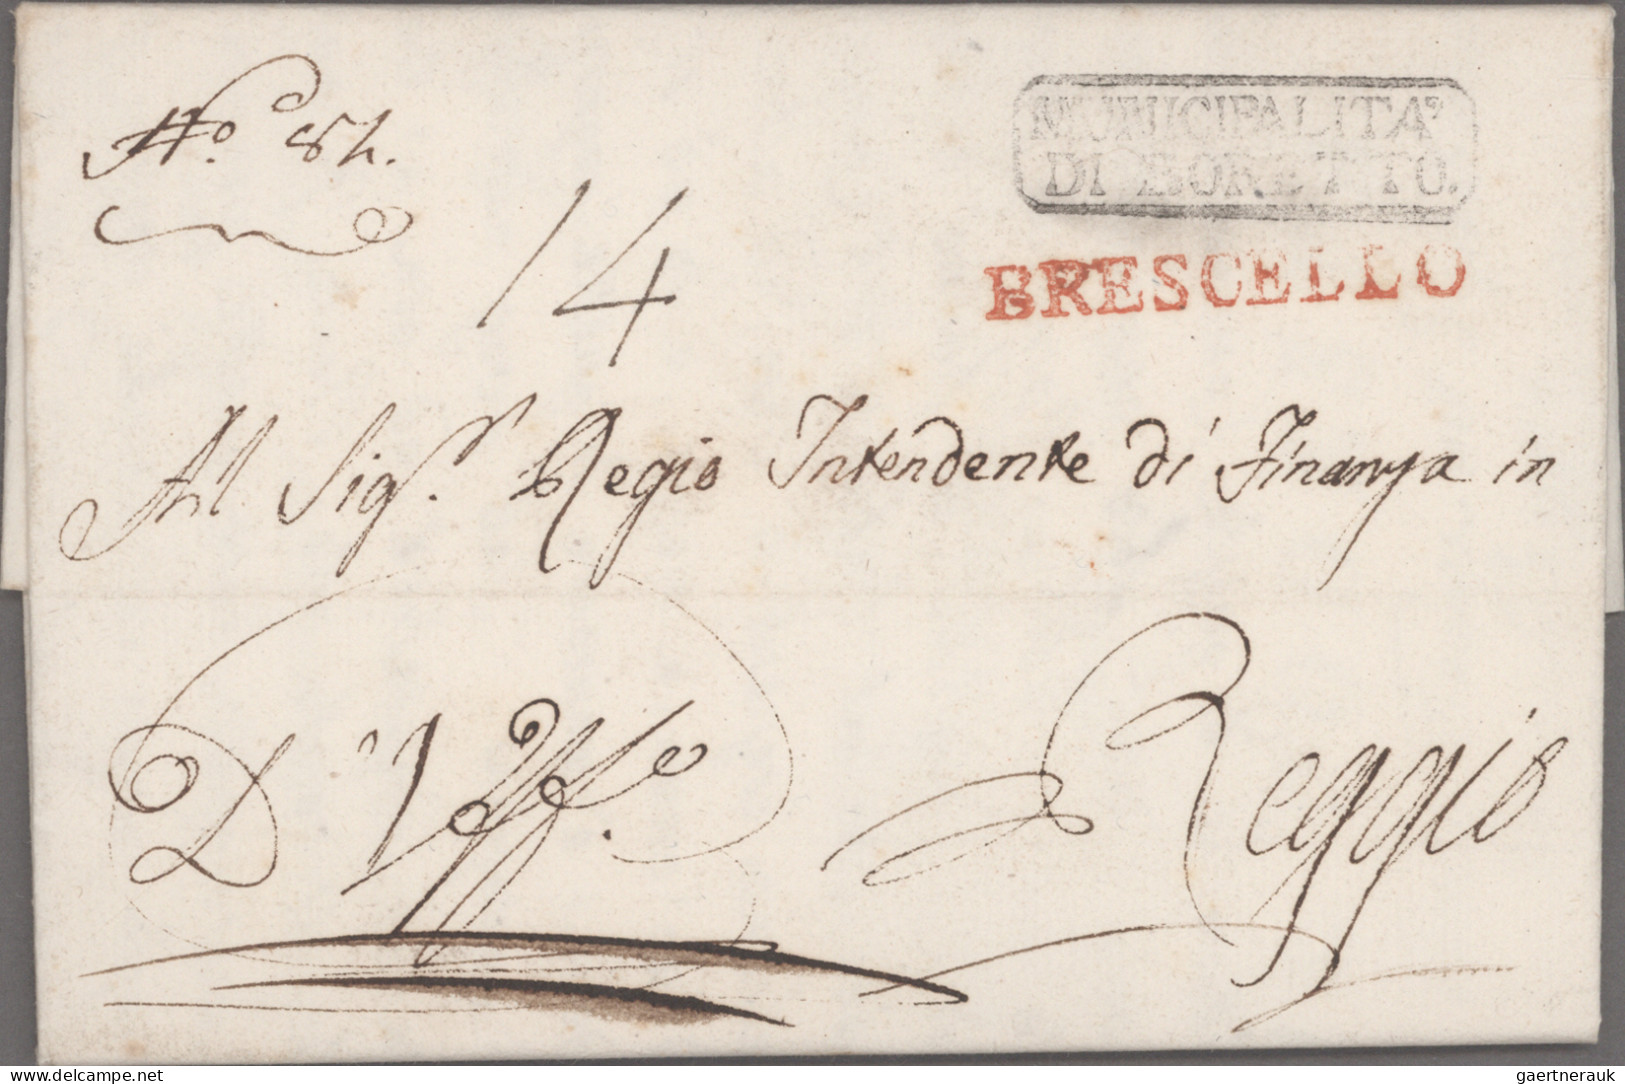 MUNICIPALITA'
DI BORETTO.
BRESCELLO
14
Al Sigr. Regio Intendente di Finanza in
Reggio
D'Uff.o
delcampe.net
gaertnerauk